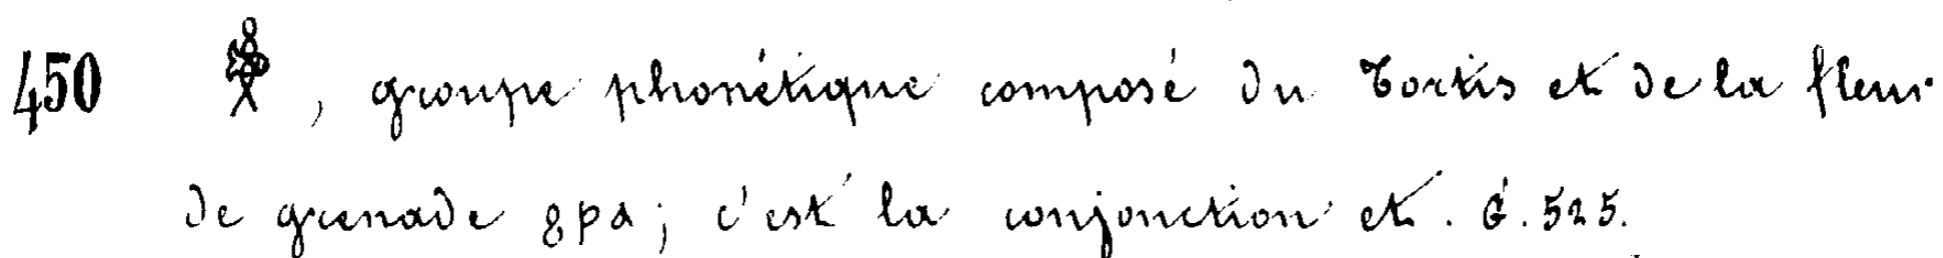 450 , groupe phonétique composé du Tortis et de la fleur
de grenade ϩρα; c'est la conjonction et. G. 525.